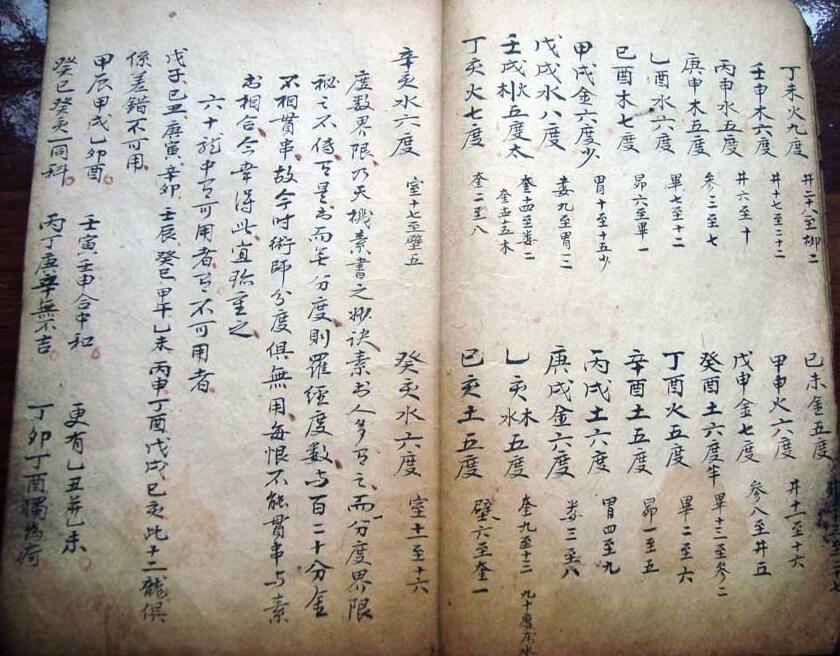 丁未火九度 井二十八至柳二 己未金五度 井十一至十六
壬申木六度 井十七至二十二 甲申火六度
丙申水五度 井六至十 戊申金七度 參八至井五
庚申木五度 參二至七 癸酉土六度半 畢十三至參二
乙酉水六度 畢七至十二 丁酉火五度 畢二至六
己酉木七度 昴六至畢一 辛酉土五度 昴一至五
甲戌金六度少 胃十至十五少 丙戌土六度 胃四至九
戊戌水八度 婁九至胃三 庚戌金六度 婁三至八
壬戌 五度太 奎 至婁二 乙亥 五度 奎九至十三
丁亥火七度 奎二至八 己亥土五度 壁六至奎一
辛亥水六度 室十七至壁五 癸亥水六度 室十一至十六
度数界限乃天機素書之妙诀素书人多有之而分度界限
秘之不传 是书而无分度則羅經度数与百二十分金
不相貫串故今时術師分度俱無用每恨不能貫串与素
书相合今幸得此宜珍重之
六十龍中有可用者有不可用者
戊子己丑庚寅辛卯壬辰癸巳甲午乙未丙申丁酉戊戌己亥此十二龍俱
係差錯不可用
甲辰甲戌乙卯酉 壬寅壬申合中和 更有乙丑并乙未
癸巳癸亥一同科 丙丁庚辛無不吉 丁卯丁酉獨為奇